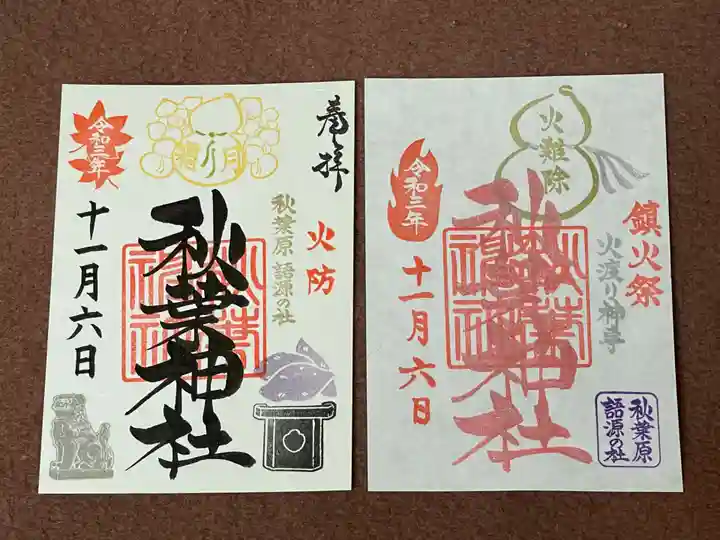 奉拝
火防
秋葉原 語源の社
霜月
秋葉神社
令和三年
十一月六日
火難除
鎮火祭
火渡り神事
秋葉神社
令和三年
十一月六日
秋葉原
語源の社